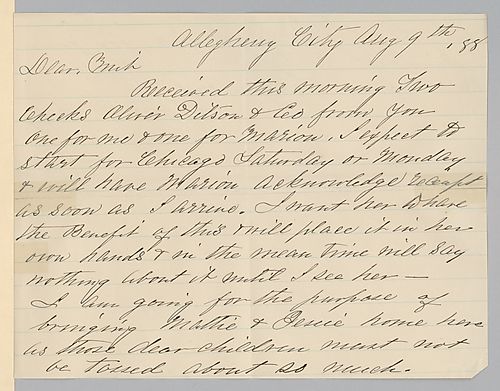 Allegheny City Aug 9th, 88
Dear
Received this morning Two
Checks Oliver Ditson & Co from you
one for me & one for Marion. I expect to
start for Chicago Saturday or Monday
& will have Marion acknowledge receipt
as soon as I arrive. I want her to have
the Benefit of this & will place it in her
own hands & in the mean time will say
nothing about it until I see her —
I am going for the purpose of
bringing Mattie & Jessie home here
as those dear children must not
be tossed about so much.